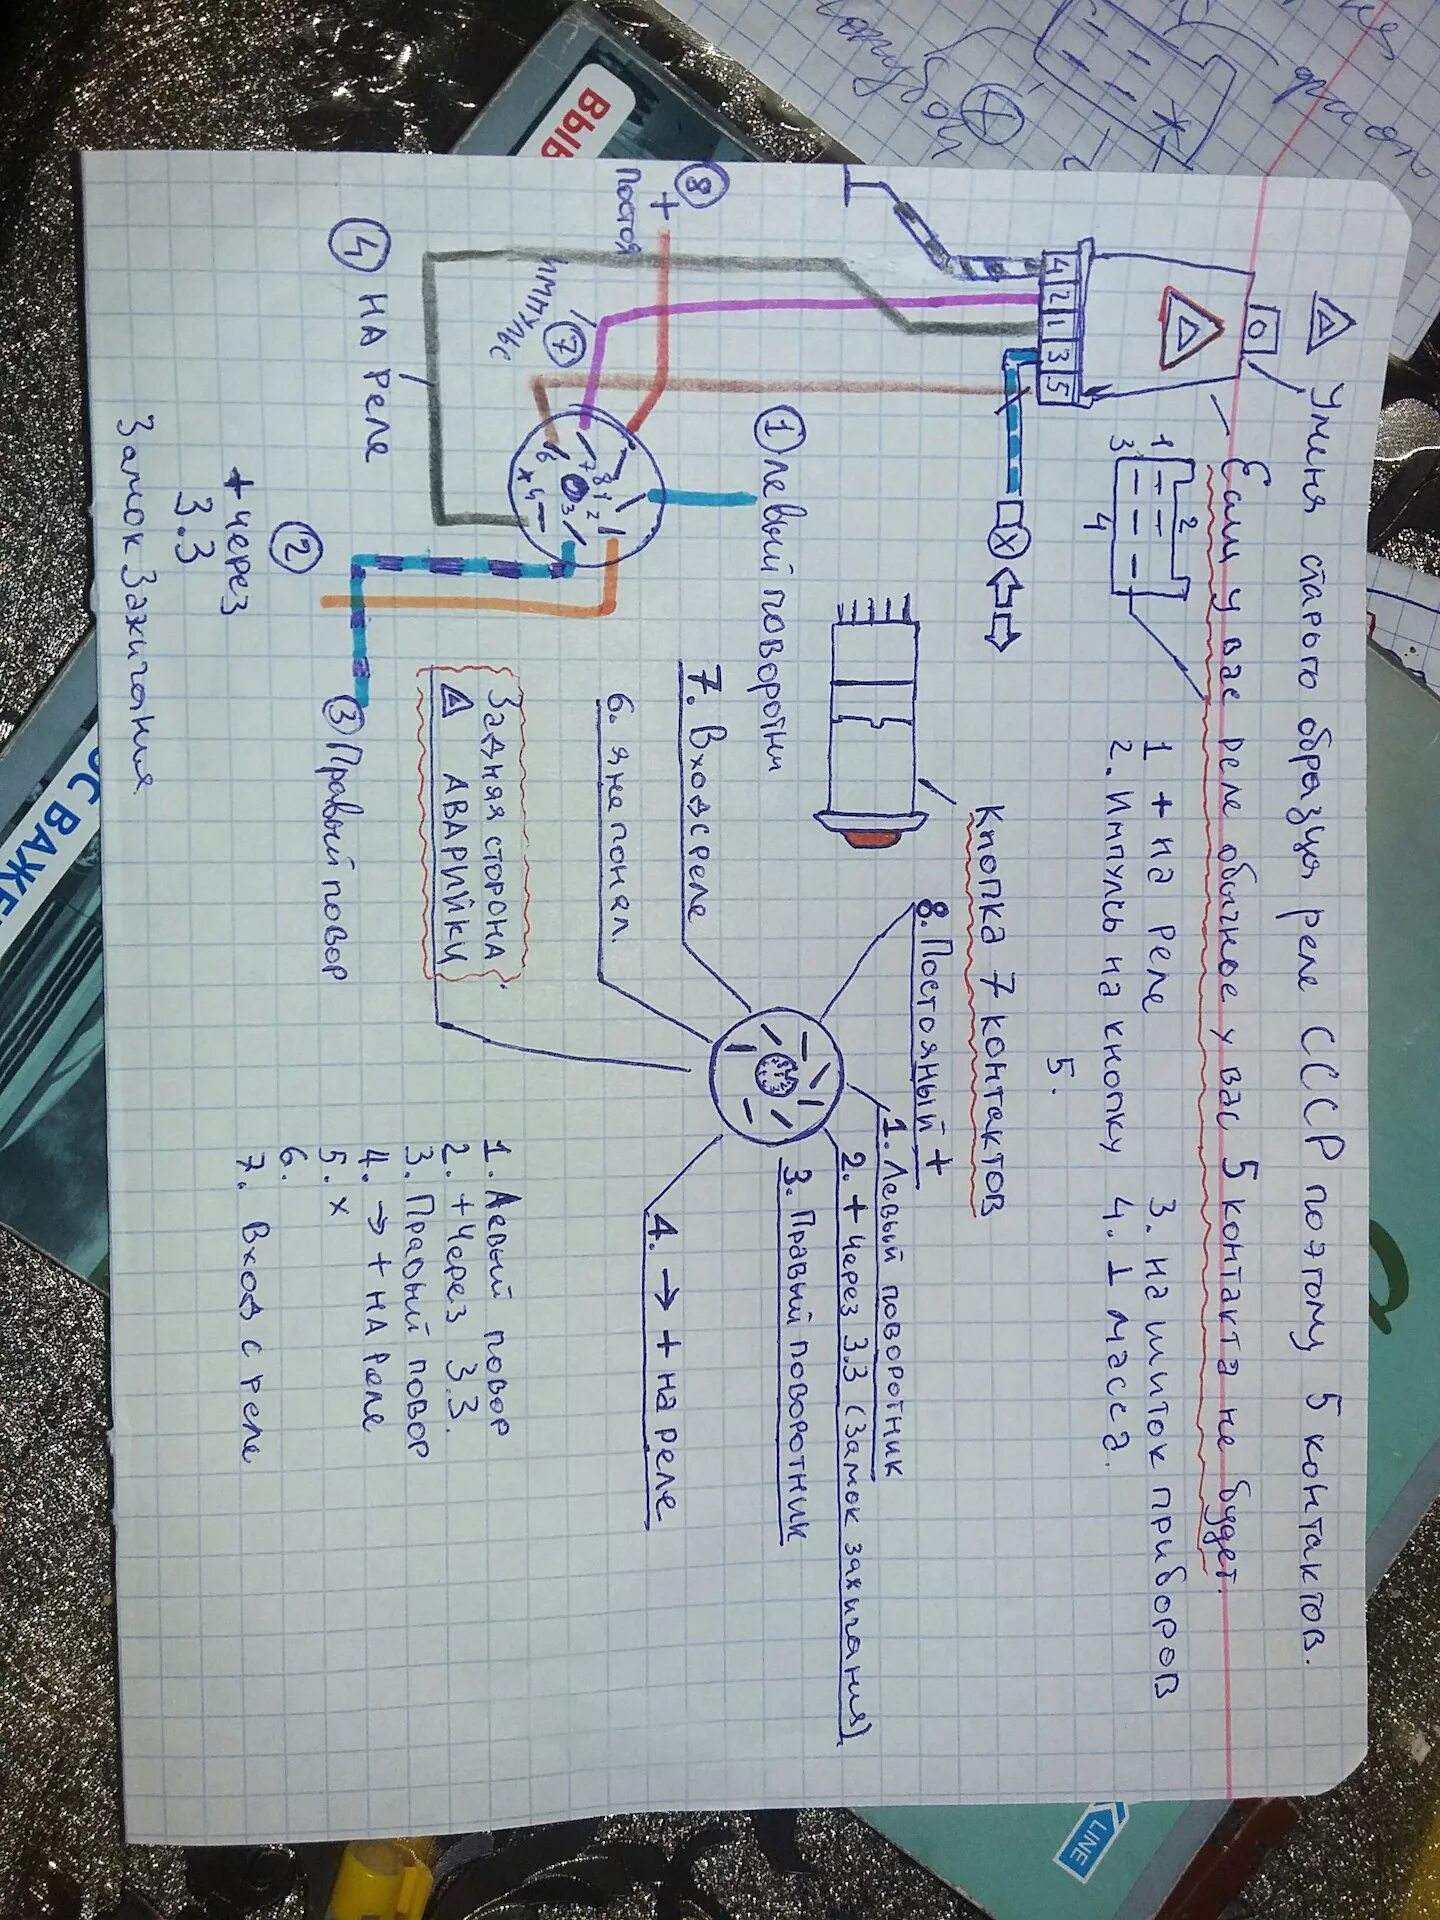 У меня старого образца реле СССР поэтому 5 контактов.
Если у вас реле обычное у вас 5 контакта не будет.
4 2 1 3 5
1 2
3 4
1 + на реле
2. Импульс на кнопку
3. на щиток приборов
4. ⊥ масса.
5.
Кнопка 7 контактов
8
+
Постоя
импульс
7
1 Левый поворотни
4 на реле
6 7 8 1 2 3 4 х
2
+ через
З.З
Замок Зажигания
3 Правый повор
8. Постояный +
1. Левый поворотник
2. + через З.З (Замок зажигания)
3. Правый поворотник
4. → + на реле
7. Вход с реле
6. я не понял.
Задняя сторона
АВАРИЙКИ
1. Левый повор
2. + Через З.З.
3. Правый повор
4. → + на реле
5. х
6.
7. Вход с реле
ВЫВ
ОС ВАЖЕ
LINE